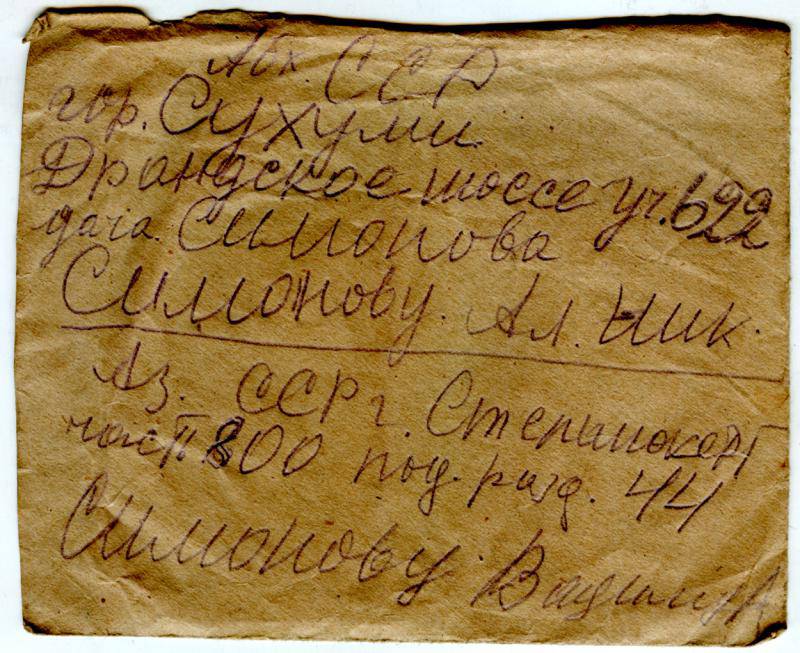 Абх. ССР
гор. Сухуми
Драндское шоссе уч. 622
дача Симонова
Симонову. Ал. Ник.
Аз. ССР г.
част 800 под. разд. 44
Симонову